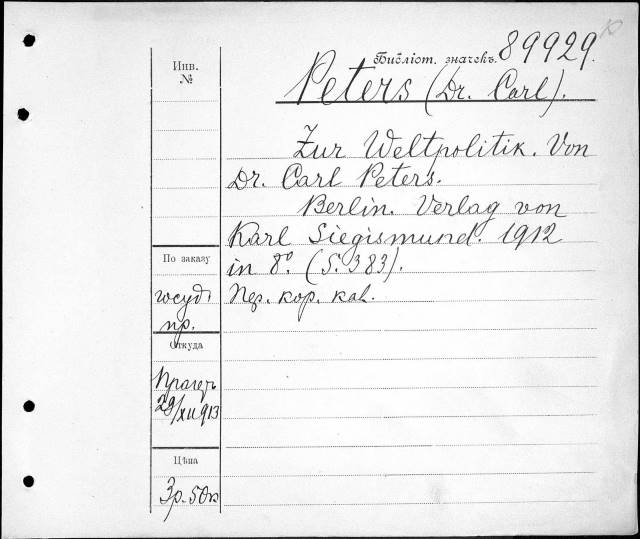 Библіот. значекъ. 89929.
Инв.
№
Peters (Dr. Carl).
Zur Weltpolitik. Von
Dr. Carl Peters.
Berlin. Verlag von
Karl Siegismund. 1912
in 8º. (S. 383).
По заказу
пр.
Пер. кор. каl.
Откуда
Прагеръ
29/XII 913
Цѣна
3р. 50к